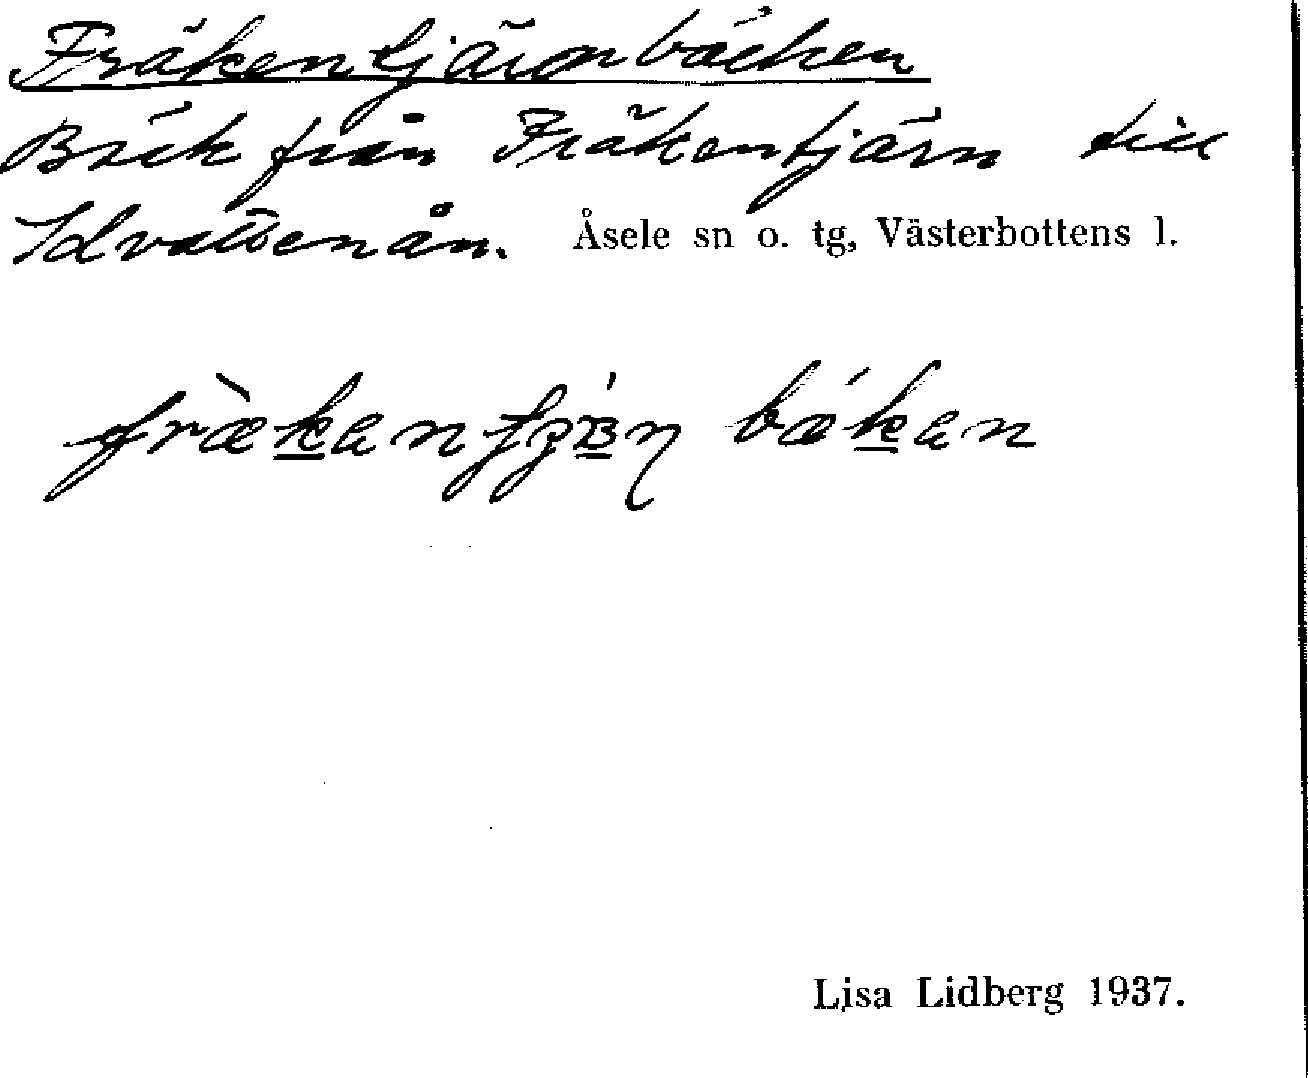 Fräkentjärnbäcken
Bäck från Fräkentjärn till
Idvattenån. Åsele sn o. tg, Västerbottens l.
bækan
Lisa Lidberg 1937.